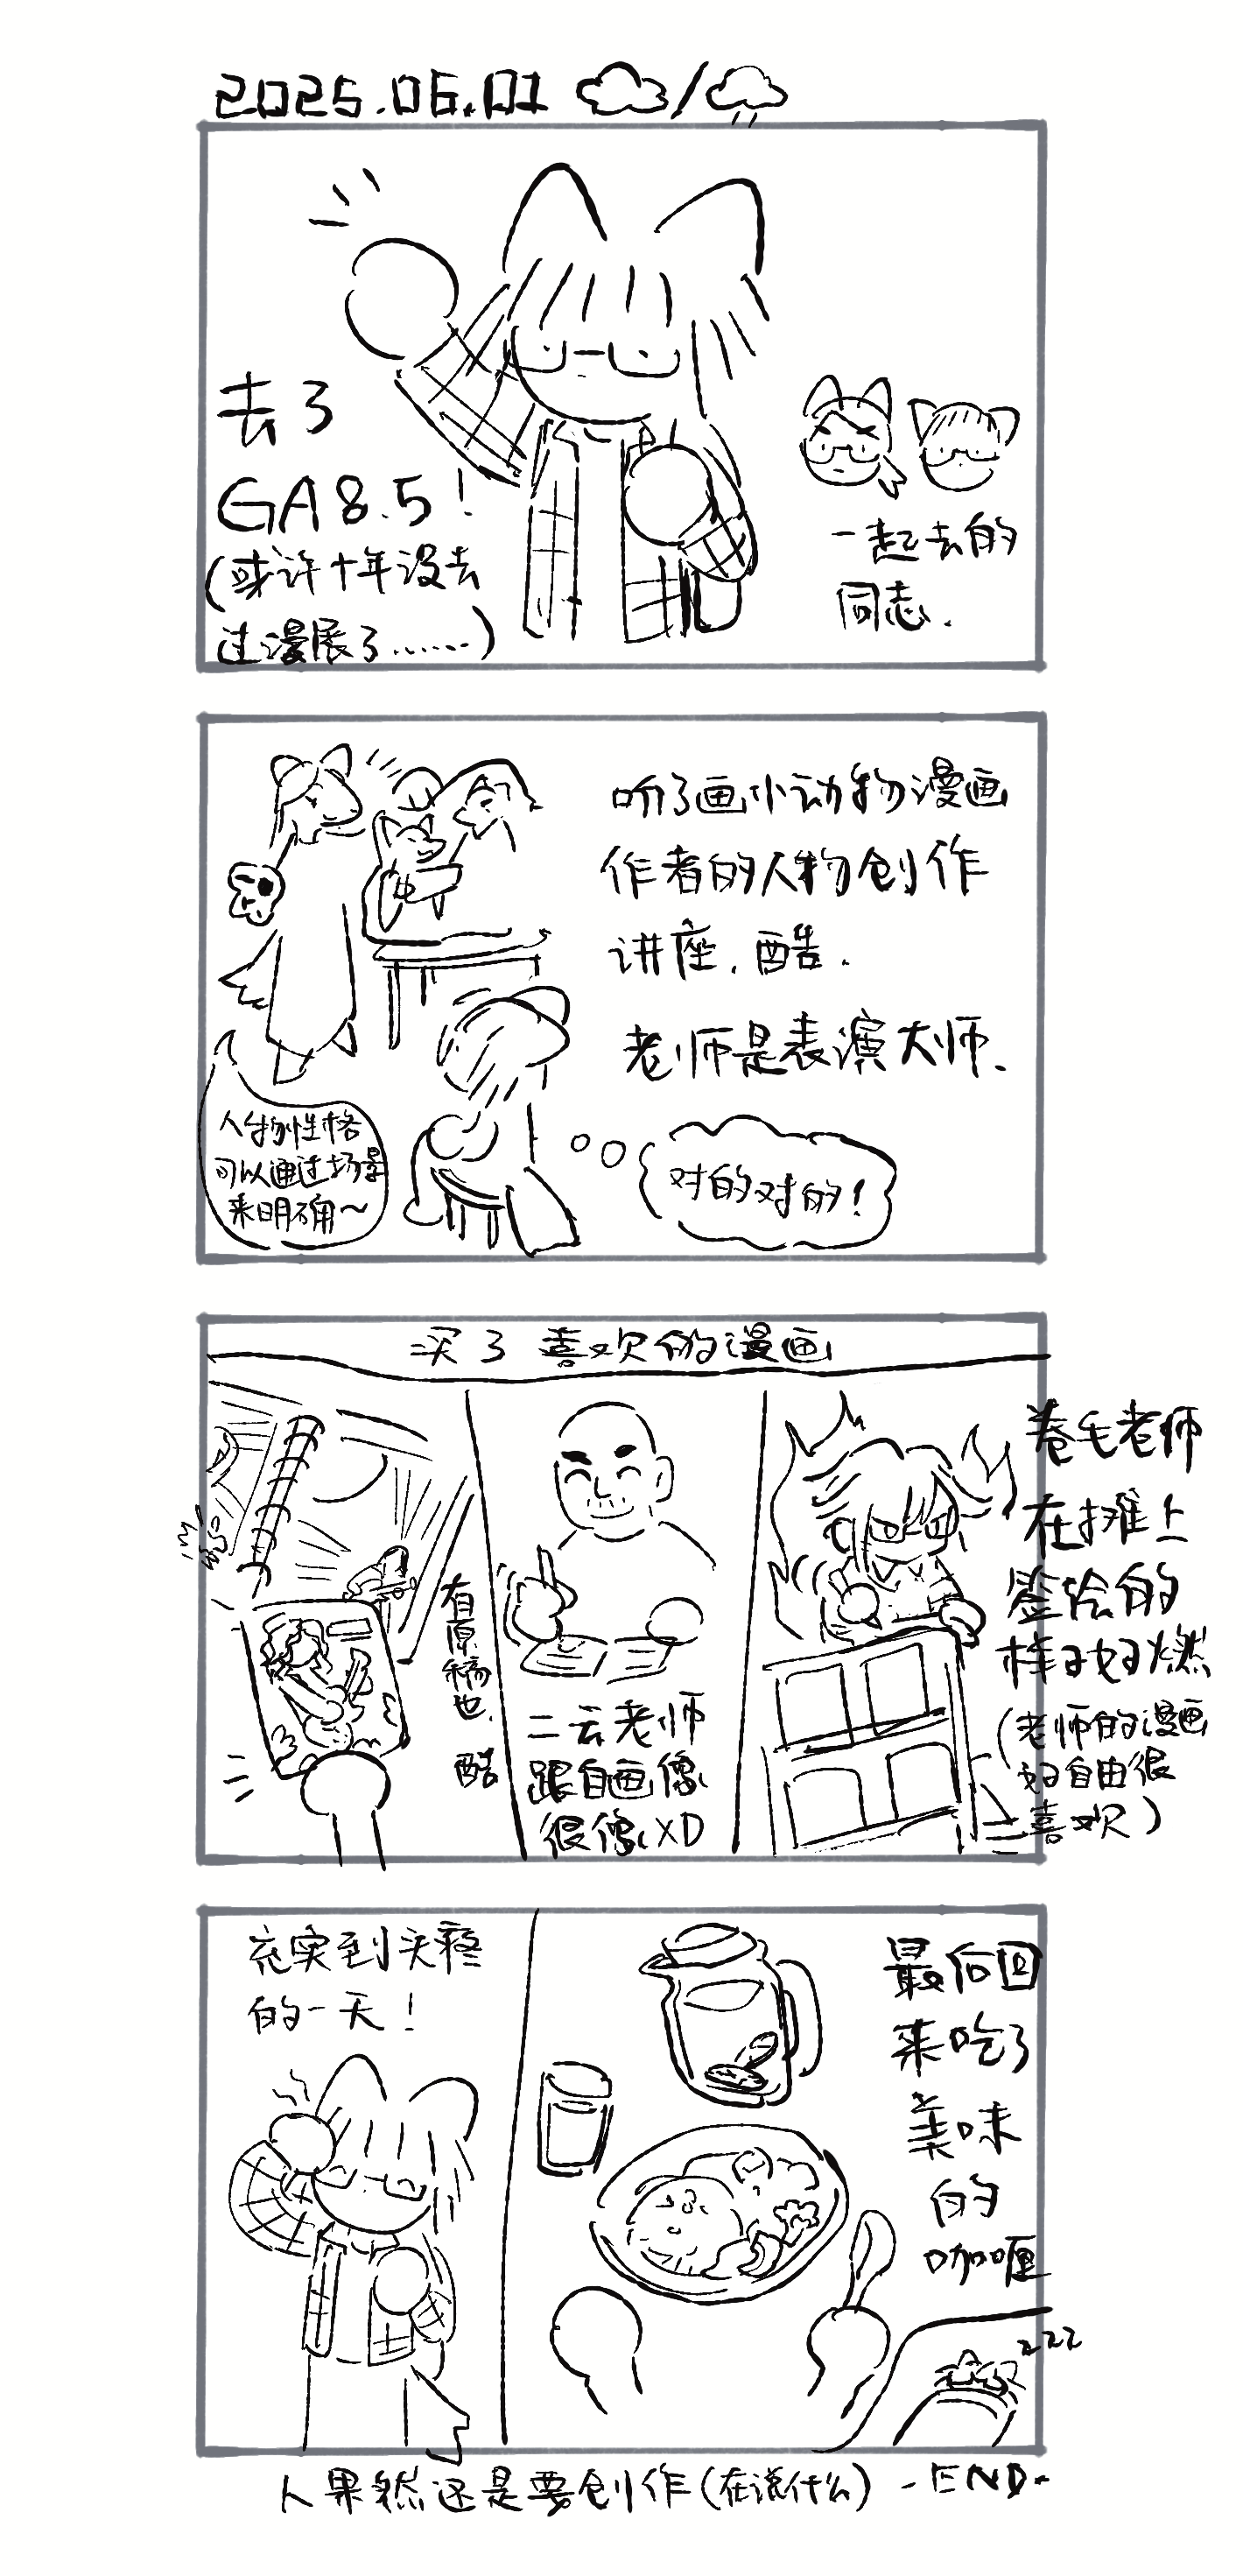 2025.06.01
去了
GA8.5!
(或许十年没去
过漫展了……)
一起去的
同志.
听了画小动物漫画
作者的人物创作
讲座.酷.
老师是表演大师.
人物性格
可以通过场景
来明确～
对的对的!
买了喜欢的漫画
有原稿也.酷
二云老师
跟自画像
很像XD
卷毛老师
在摊上
签绘的
样子好燃
(老师的漫画
好自由很
喜欢)
充实到头疼
的一天!
最后回
来吃了
美味
的
咖喱
zzz
人果然还是要创作(在说什么) -END-